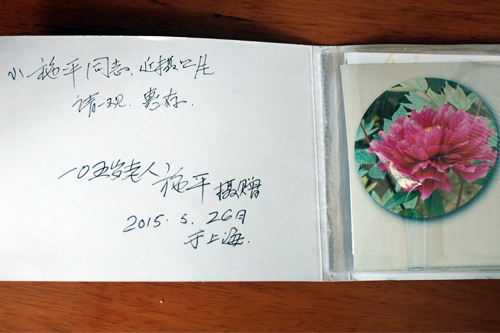 小施平同志、近摄公片
请一观、惠存.
一〇五岁老人
施平 摄赠
2015. 5. 26日
于上海.